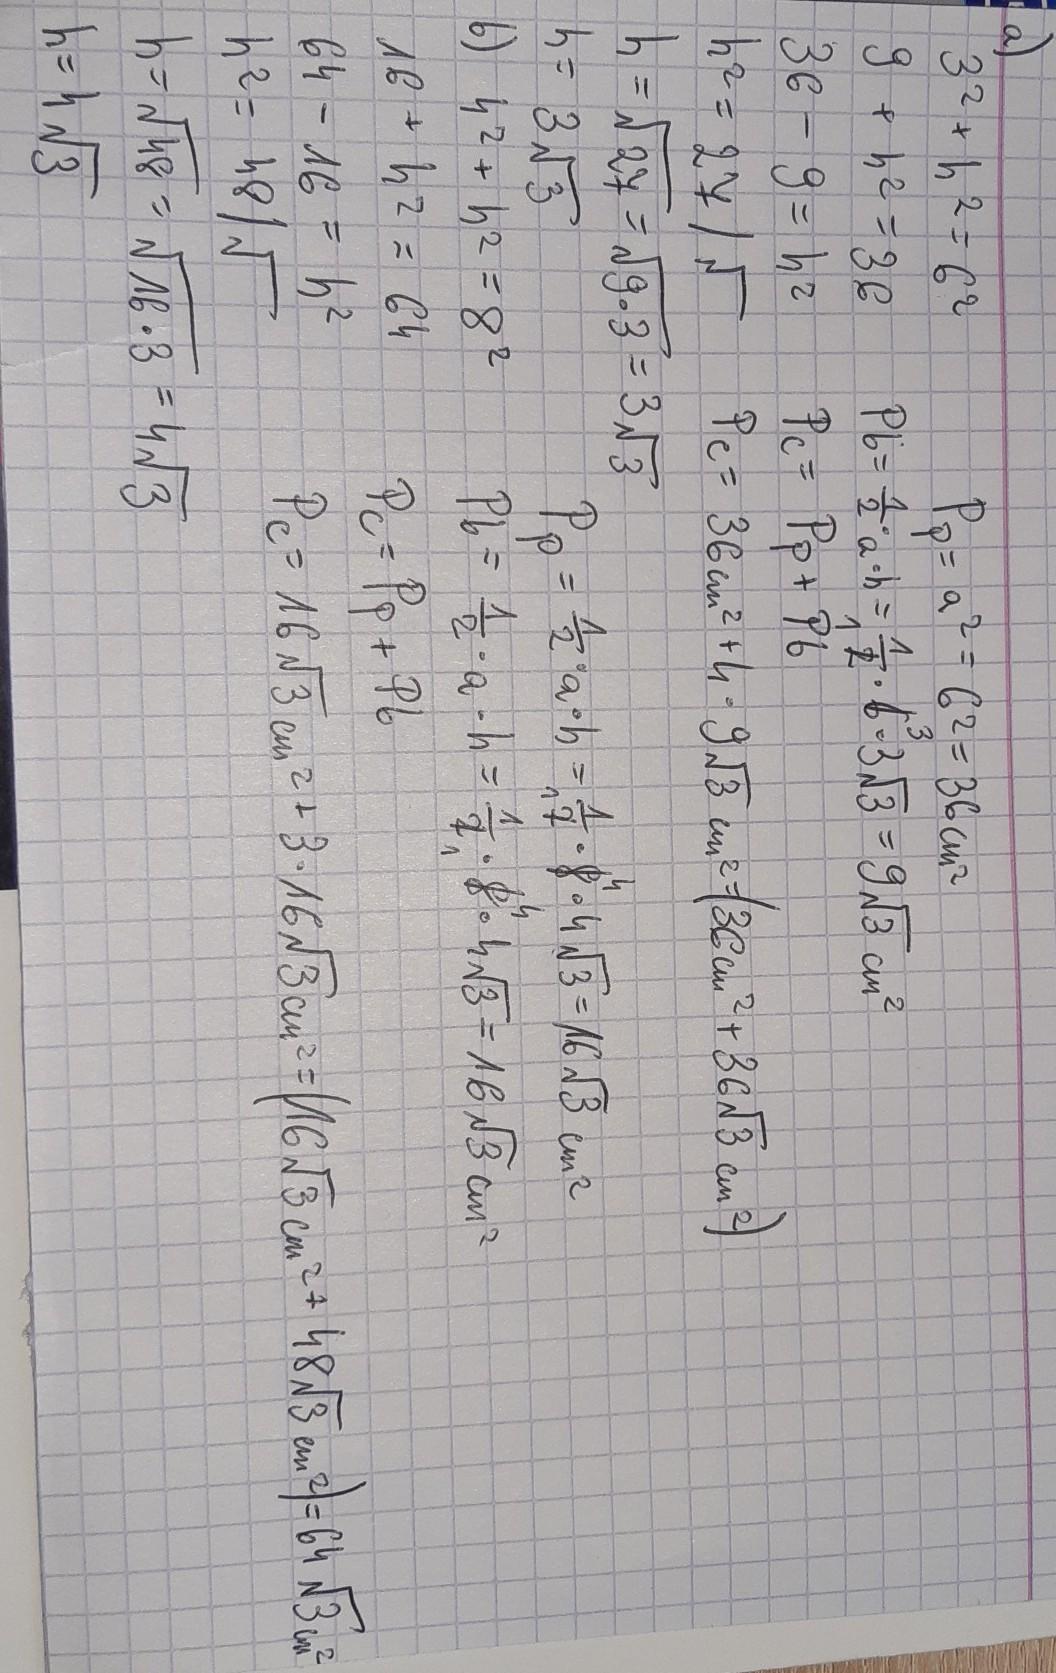 a)
3² + h² = 6²
9 + h² = 36
36 - 9 = h²
h² = 27 /√
h = √27 = √9·3 = 3√3
h = 3√3
Pp = a² = 6² = 36cm²
Pb = 1/2 · a · h = 1/2 1 · 6 3 · 3√3 = 9√3 cm²
Pc = Pp + Pb
Pc = 36cm² + 4 · 9√3 cm² = (36cm² + 36√3 cm²)
b) 4² + h² = 8²
16 + h² = 64
64 - 16 = h²
h² = 48 /√
h = √48 = √16·3 = 4√3
h = 4√3
Pp = 1/2 · a · h = 1/2 1 · 8 4 · 4√3 = 16√3 cm²
Pb = 1/2 · a · h = 1/2 1 · 8 4 · 4√3 = 16√3 cm²
Pc = Pp + Pb
Pc = 16√3 cm² + 3 · 16√3 cm² = (16√3 cm² + 48√3 cm²) = 64√3 cm²